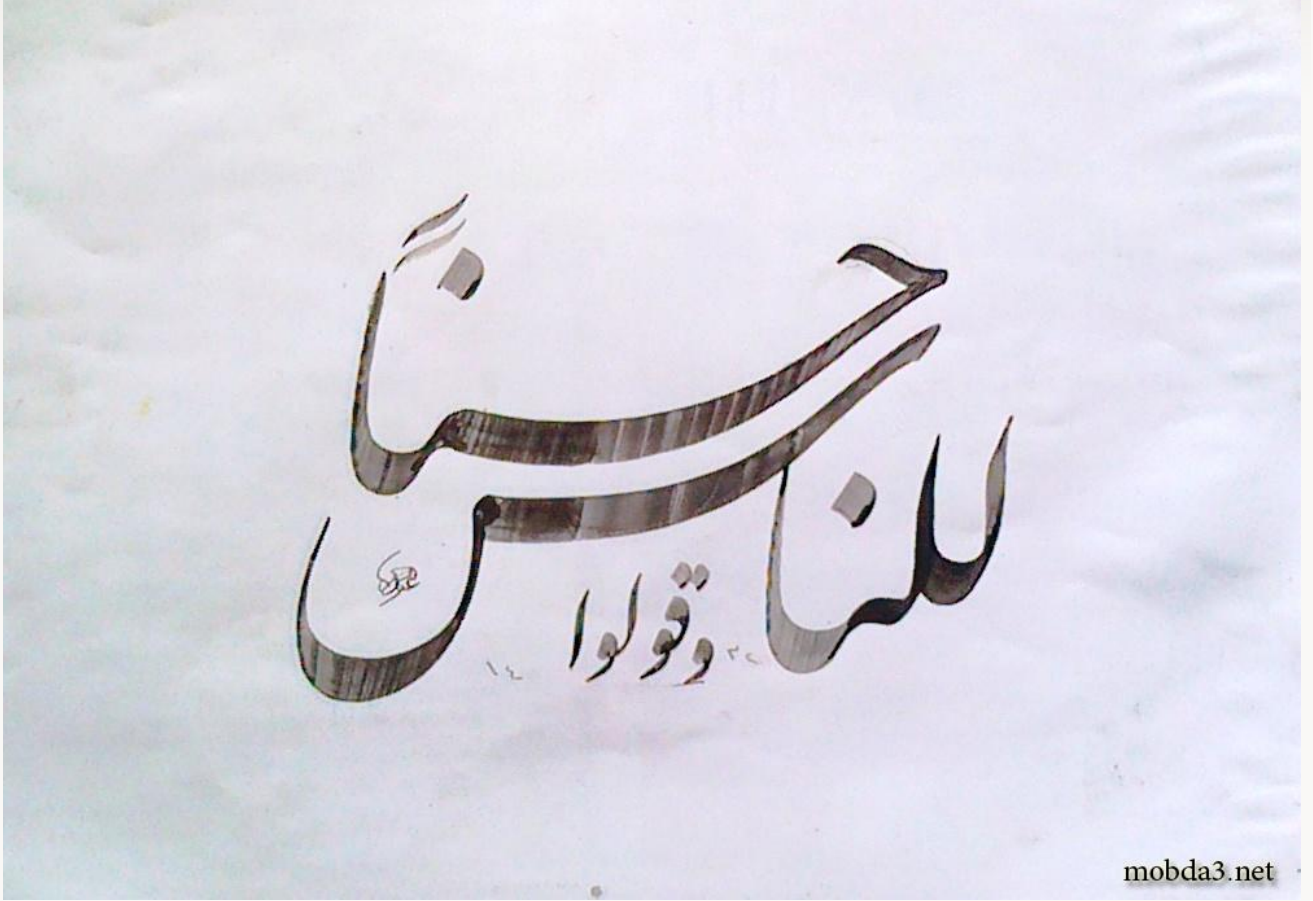 وقولوا
للناس
حسناً
١٤ ٣٤
mobda3.net